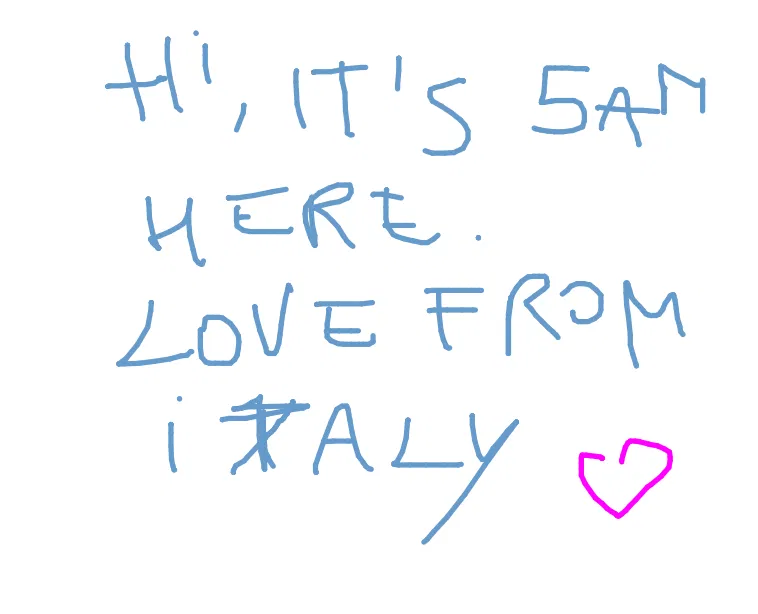 Hi, IT'S SAM
HERE.
LOVE FROM
iTALY